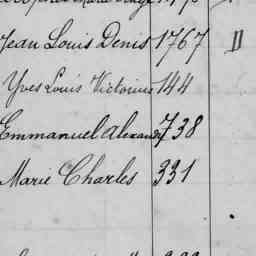 Jean Louis Denis 1767 II
Yves Louis Victorine 144
Emmanuel Alexandre 738
Marie Charles 331